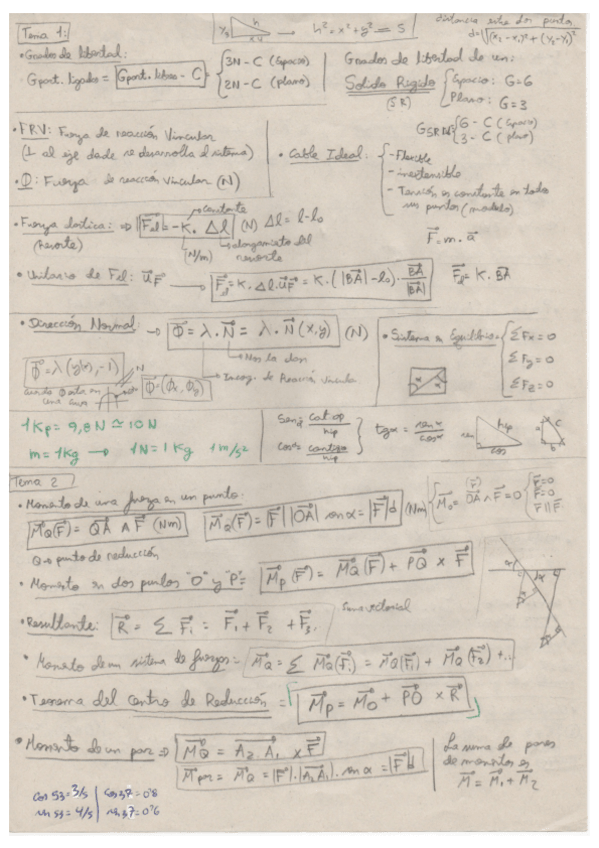 Tema 1:
h
x
h² = x² + y² = 5
distancia entre dos puntos
d = √(x₂-x₁)² + (y₂-y₁)²
• Grados de libertad:
G part. ligados = G part. libres - C = { 3N - C (Espacio)
2N - C (Plano)
Grados de libertad de un:
Solido Rigido (SR) { Espacio: G=6
Plano: G=3
G SR { 6 - C (Espacio)
3 - C (plano)
• FRV: Fuerza de reacción Vincular
(⊥ al eje donde se desarrolla el sistema)
• Φ: Fuerza de reacción vincular (N)
• Cable Ideal: { - Flexible
- inextensible
- Tension es constante en todos
sus puntos (modelo)
• Fuerza elástica: ⇒ |F⃗el| = -K. Δl (N) Δl = l - l₀
(resorte)
constante
(N/m) alongamiento del
resorte
F⃗ = m · a⃗
• Unitario de Fel: u⃗F → F⃗el = K. Δl. u⃗F = K. (|BA⃗| - l₀) · BA⃗/|BA⃗|
F⃗el = K. BA⃗
• Dirección Normal: → Φ⃗ = λ. N⃗ = λ. N⃗ (x,y) (N)
Nos la dan
Incog. de Reacción vincular
Φ⃗ = λ (y'(x), -1)
N
Φ⃗ = (Φx, Φy)
• Sistema en Equilibrio = { ΣFx = 0
ΣFy = 0
ΣFz = 0
1Kp = 9,8 N ≃ 10 N
m = 1Kg → 1N = 1 Kg 1 m/s²
Senα = cat op / hip
cosα = contiguo / hip
tgα = senα / cosα
sen hip cos
Tema 2
• Momento de una fuerza en un punto:
M⃗Q(F⃗) = QA⃗ ∧ F⃗ (Nm)
M⃗Q(F⃗) = |F⃗| |OA⃗| senα = |F⃗| d (Nm)
M⃗₀ = OA⃗ ∧ F⃗ = 0 { r⃗ = 0
F⃗ = 0
r⃗ || F⃗
Q → punto de reducción
• Momento en dos puntos "O" y "P" = M⃗p (F⃗) = M⃗Q (F⃗) + PQ⃗ × F⃗
• Resultante: R⃗ = Σ F⃗i = F⃗₁ + F⃗₂ + F⃗₃.
Suma vectorial
• Momento de un sistema de fuerzas = M⃗Q = Σ M⃗Q(F⃗i) = M⃗Q(F⃗₁) + M⃗Q(F⃗₂) + ..
• Teorema del Centro de Reducción = M⃗p = M⃗o + PO⃗ × R⃗
• Momento de un par ⇒ M⃗Q = A₂A₁⃗ × F⃗
M⃗par = M⃗Q = |F⃗| · |A₂A₁⃗| . sen α = |F⃗| d
La suma de pares
de momentos es
M⃗ = M⃗₁ + M⃗₂
cos 53 = 3/5 | cos 37 = 0'8
sen 53 = 4/5 | sen 37 = 0'6